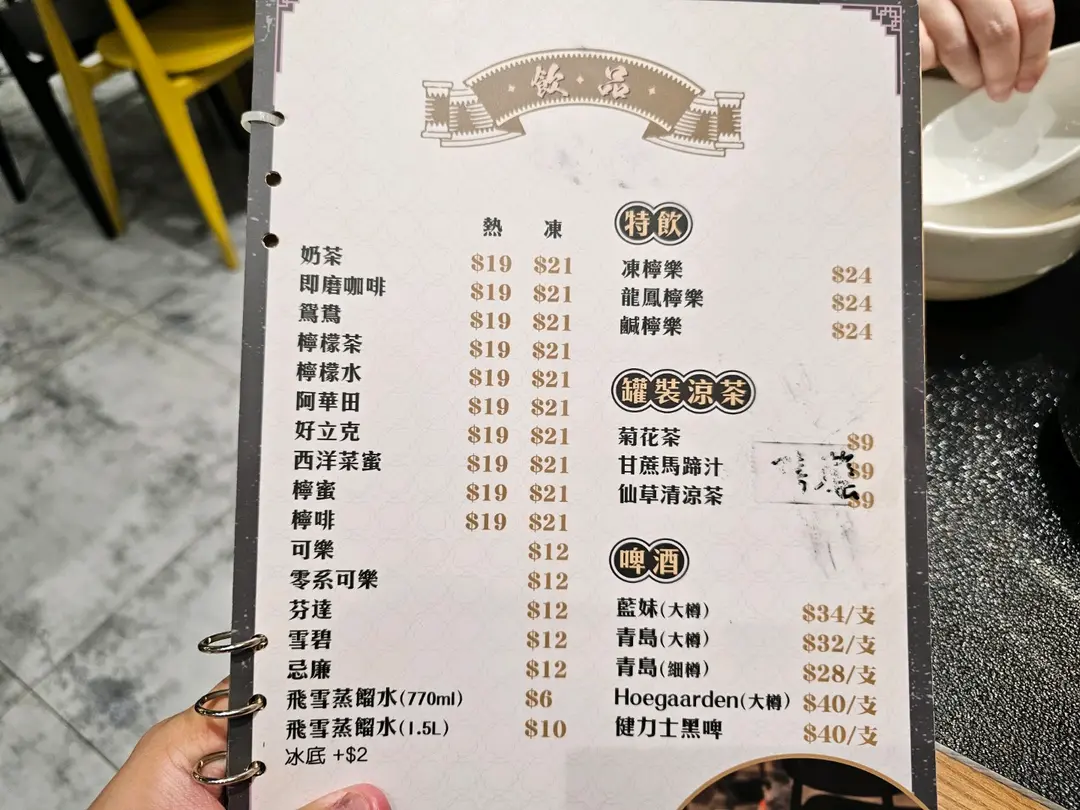 飲品
熱 凍
奶茶 $19 $21
即磨咖啡 $19 $21
鴛鴦 $19 $21
檸檬茶 $19 $21
檸檬水 $19 $21
阿華田 $19 $21
好立克 $19 $21
西洋菜蜜 $19 $21
檸蜜 $19 $21
檸啡 $19 $21
可樂 $12
零系可樂 $12
芬達 $12
雪碧 $12
忌廉 $12
飛雪蒸餾水(770ml) $6
飛雪蒸餾水(1.5L) $10
冰底 +$2
特飲
凍檸樂 $24
龍鳳檸樂 $24
鹹檸樂 $24
罐裝涼茶
菊花茶 $9
甘蔗馬蹄汁 $9
仙草清涼茶 $9
啤酒
藍妹(大樽) $34/支
青島(大樽) $32/支
青島(細樽) $28/支
Hoegaarden(大樽) $40/支
健力士黑啤 $40/支